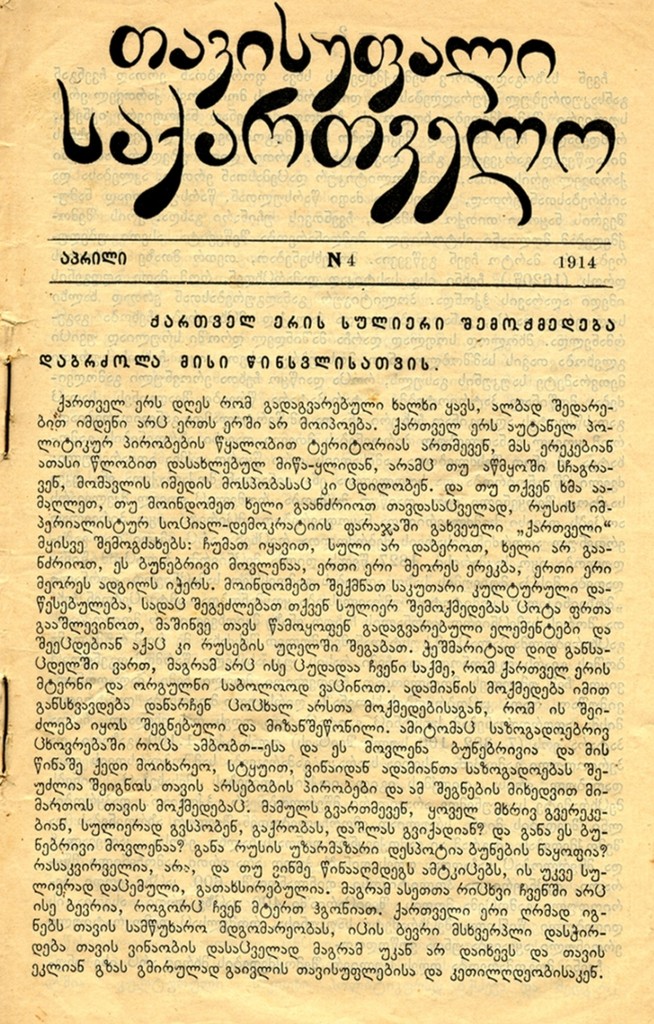 თავისუფალი
საქართველო
აპრილი N 4 1914
ქართველ ერის სულიერი შემოქმედება
დაბრძოლა მისი წინსვლისათვის.
ქართველ ერს დღეს რომ გადაგვარებული ხალხი ყავს, ალბად შედარე-
ბით იმდენი არც ერთს ერში არ მოიპოება. ქართველ ერს აუტანელ პო-
ლიტიკურ პირობების წყალობით ტერიტორიას ართმევენ, მას ერეკებიან
ათასი წლობით დასახლებულ მიწა-ყლიდან, არამც თუ აწმყოში სჩაგრა-
ვენ, მომავლის იმედის მოსპობასაც კი ცდილობენ. და თუ თქვენ ხმა აა-
მაღლეთ, თუ მოინდომეთ ხელი გაანძრიოთ თავდასაცველად, რუსის იმ-
პერიალისტურ სოციალ-დემოკრატიის ფარაჯაში გახვეული „ქართველი“
მყისვე შემოგძახებს: ჩუმათ იყავით, სული არ დაბეროთ, ხელი არ გაა-
ნძრიოთ, ეს ბუნებრივი მოვლენაა, ერთი ერი მეორეს ერეკბა, ერთი ერი
მეორეს ადგილს იჭერს. მოინდომებთ შექმნათ საკუთარი კულტურული და-
წესებულება, სადაც შეგეძლებათ თქვენ სულიერ შემოქმედებას ცოტა ფრთა
გააშლევინოთ, მაშინვე თავს წამოყოფენ გადაგვარებული ელემენტები და
შეეცდებიან აქაც კი რუსების უღელში შეგაბათ. ჭეშმარიტად დიდ განსა-
ცდელში ვართ, მაგრამ არც ისე ცუდადაა ჩვენი საქმე, რომ ქართველ ერის
მტერნი და ორგულნი საბოლოოდ ვაცინოთ. ადამიანის მოქმედება იმით
განსხვავდება დანარჩენ ცოცხალ არსთა მოქმედებისაგან, რომ ის შეი-
ძლება იყოს შეგნებული და მიზანშეწონილი. ამიტომაც საზოგადოებრივ
ცხოვრებაში როცა ამბობთ--ესა და ეს მოვლენა ბუნებრივია და მის
წინაშე ქედი მოიხარეო, სტყუით, ვინაიდან ადამიანთა საზოგადოებას შე-
უძლია შეიგნოს თავის არსებობის პირობები და ამ შეგნების მიხედვით მი-
მართოს თავის მოქმედებაც. მამულს გვართმევენ, ყოველ მხრივ გვერეკე-
ბიან, სულიერად გვსპობენ, გაქრობას, დაშლას გვიქადიან? და განა ეს ბუ-
ნებრივი მოვლენაა? განა რუსის უზარმაზარი დესპოტია ბუნების ნაყოფია?
რასაკვირველია, არა, და თუ ვინმე წინააღმდეგს ამტკიცებს, ის უკვე სუ-
ლიერად დაცემული, გათახსირებულია. მაგრამ ასეთთა რიცხვი ჩვენში არც
ისე ბევრია, როგორც ჩვენ მტერთ ჰგონიათ. ქართველი ერი ღრმად იგ-
ნებს თავის სამწუხარო მდგომარეობას, იცის ბევრი მსხვერპლი დასჭირ-
დება თავის ვინაობის დასაცველად მაგრამ უკან არ დაიხევს და თავის
ეკლიან გზას გმირულად გაივლის თავისუფლებისა და კეთილღდეობისაკენ.